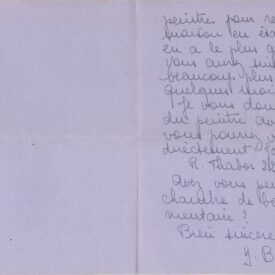 peintres pour re
maison en éta
en a le plus g
vous aurez sui
beaucoup plus
quelques mois
Je vous don
du peintre av
vous pourrez v
directement
R. Thabor 22
Avez vous pe
chambre de bo
mentaire ?
Bien sincere
Y. B